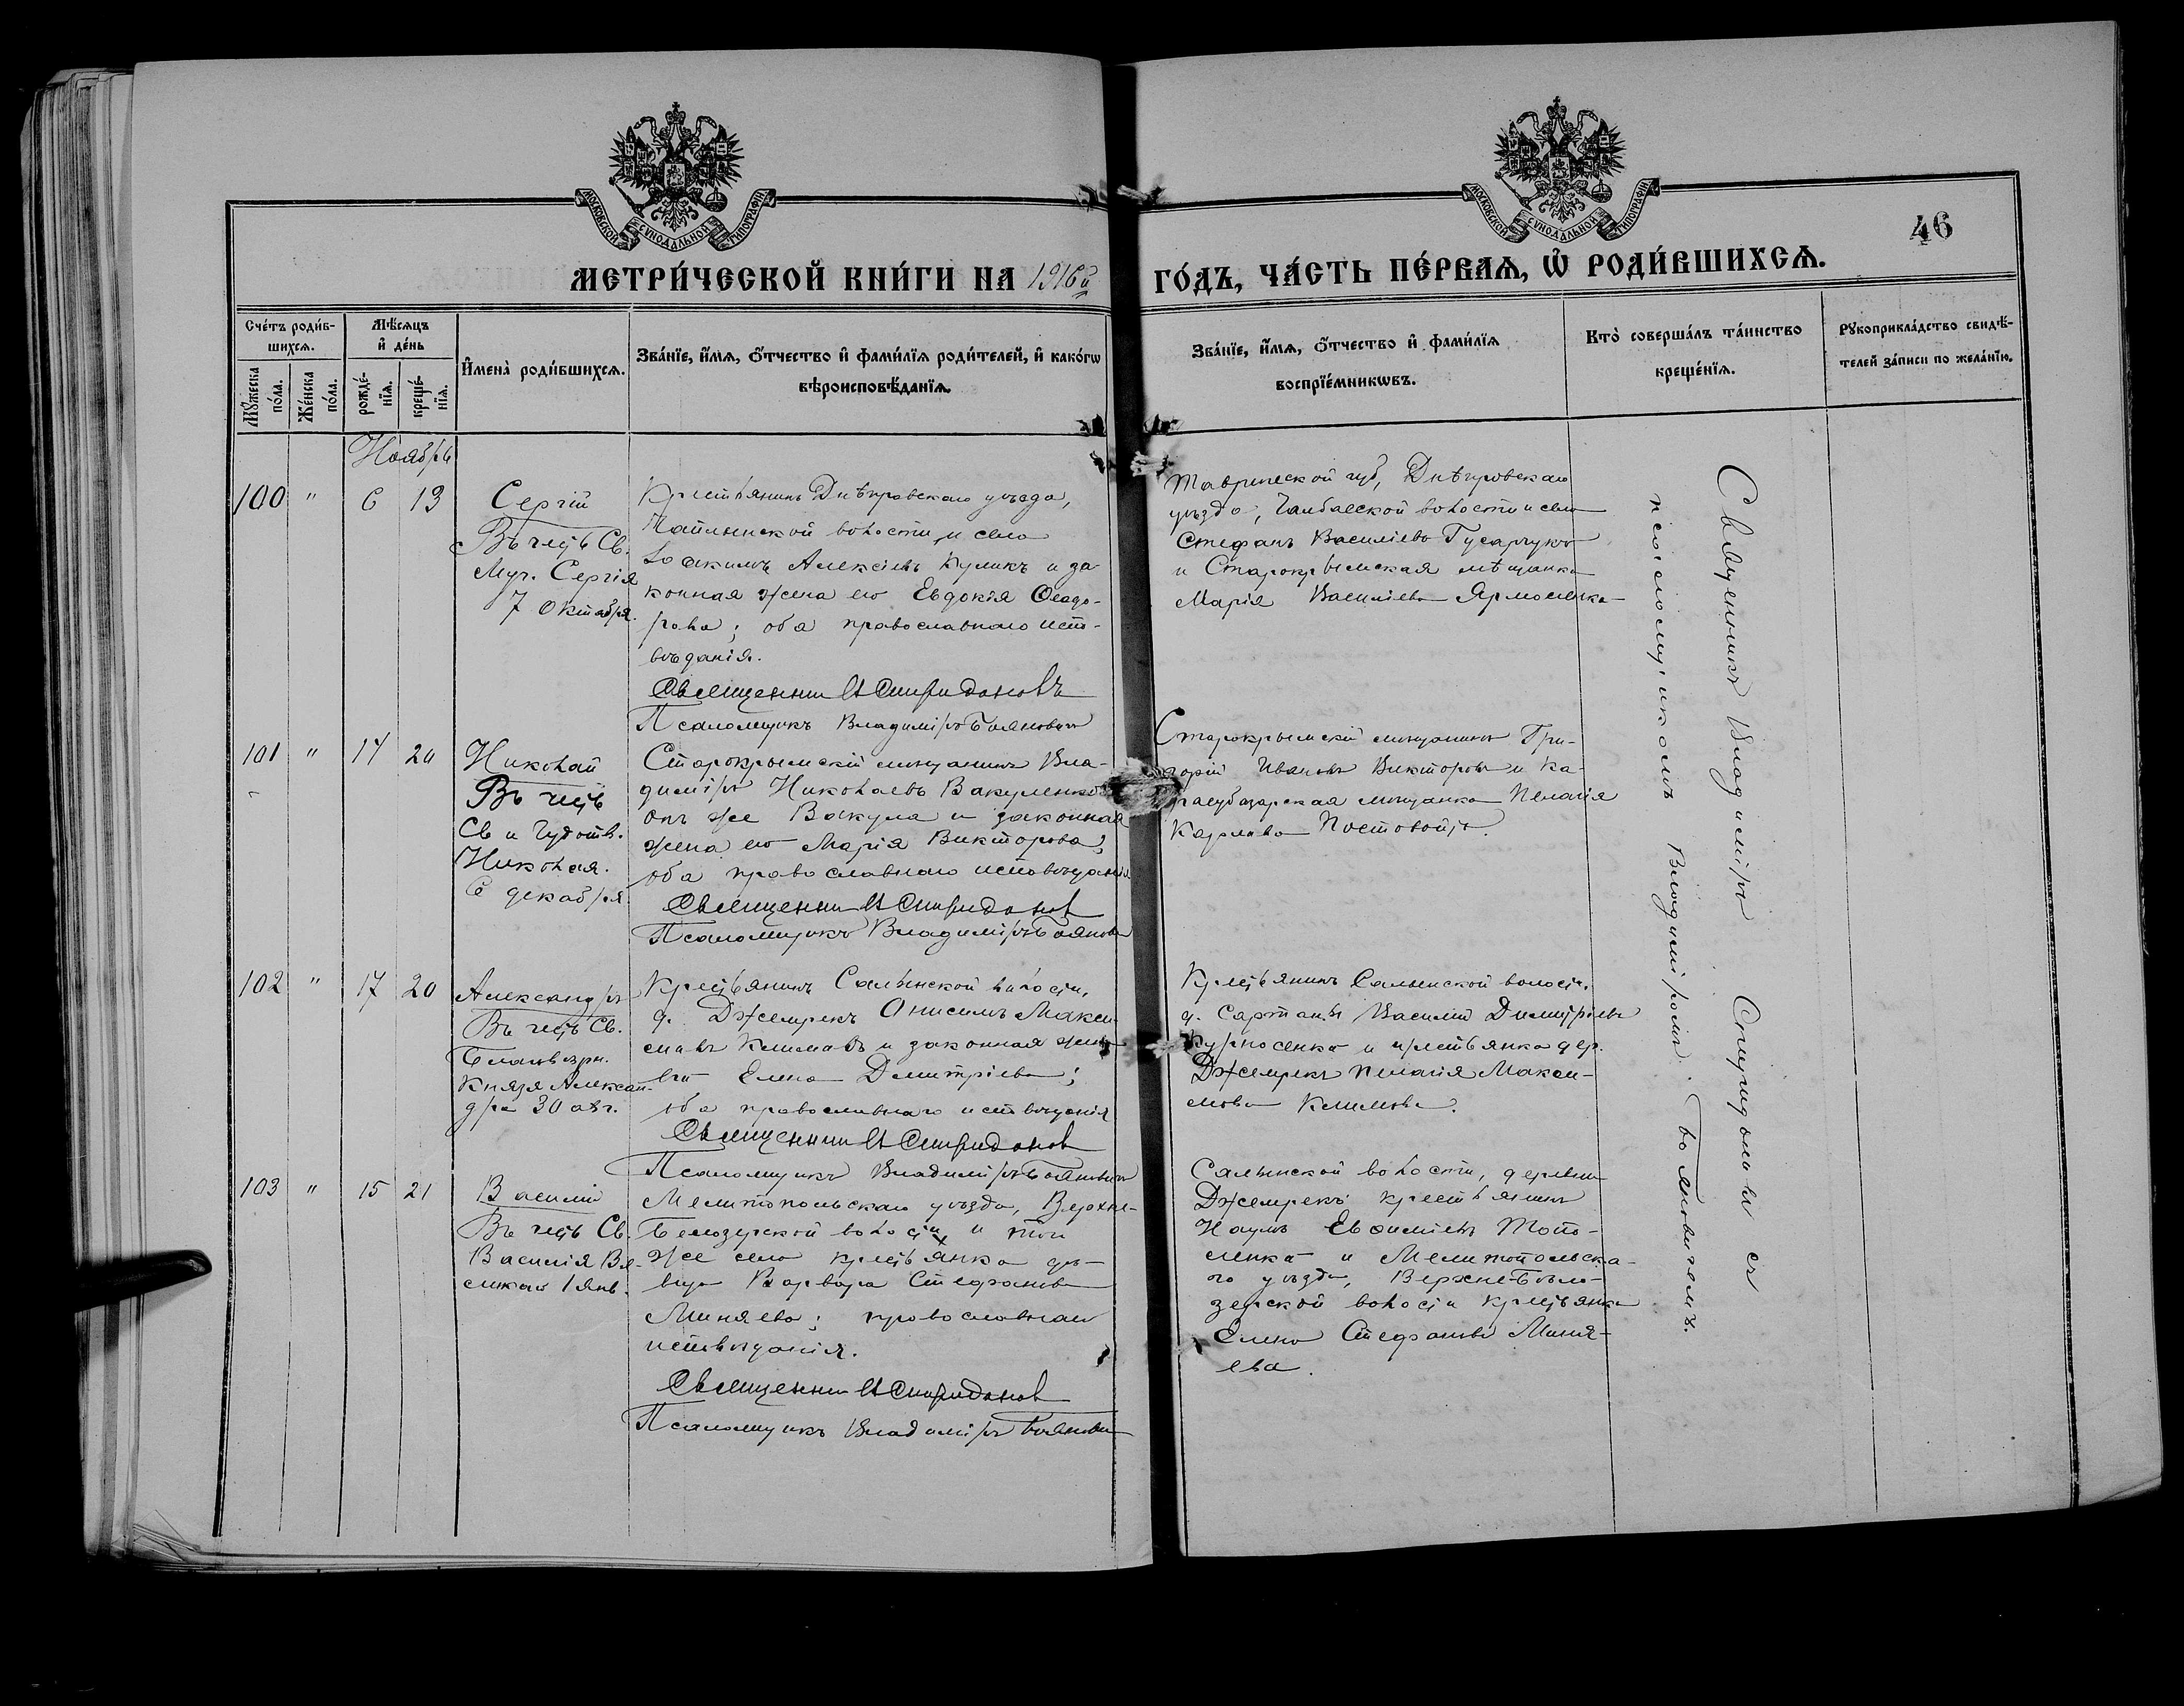 МОСКОВСКОЙ СѴНОДАЛЬНОЙ ТИПОГРАФІИ
МОСКОВСКОЙ СѴНОДАЛЬНОЙ ТИПОГРАФІИ
46
МЕТРИ́ЧЕСКОЙ КНИ́ГИ НА 1916й ГО́ДЪ, ЧА́СТЬ ПЕ́РВАѦ, Ѡ҆ РОДИ́ВШИХСѦ.
Сче́тъ роди́в-
шихсѧ.
Мꙋ́жеска по́ла.
Же́нска по́ла.
Мѣ́сѧцъ
и҆ де́нь
рожде́-
нїѧ.
креще́-
нїѧ.
И҆мена̀ роди́вшихсѧ.
Зва́нїе, и҆́мѧ, ѻ҆́тчество и҆ фами́лїѧ роди́телей, и҆ како́гѡ
вѣроисповѣ́данїѧ.
Зва́нїе, и҆́мѧ, ѻ҆́тчество и҆ фами́лїѧ
воспрїе́мникѡвъ.
Кто̀ соверша́лъ та́инство
креще́нїѧ.
Рꙋкоприкла́дство свидѣ́-
телей за́писи по жела́нїю.
Ноябрь
100 " 6 13
Сергій
Въ честь Св.
Муч. Сергія
7 Октября.
Крестьянинъ Днѣпровскаго уѣзда,
волости и села
Іоакимъ Алексіевъ Куликъ и за
конная жена его Евдокія Ѳеодо-
рова; оба православнаго испо-
вѣданія.
Священникъ Спиридоновъ
Псаломщикъ Владиміръ Бояновичъ
Таврической губ, Днѣпровскаго
уѣзда, волости и села
Стефанъ Василіевъ Гусарчукъ
и Старокрымская мѣщанка
Марія Василіева
101 " 14 20
Николай
Въ честь
Св и Чудотв.
Николая.
6 декабря
Старокрымскій мѣщанинъ Вла-
диміръ Николаевъ Вакуленко
онъ же Вакула и законная
жена его Марія Викторова;
оба православнаго исповѣданія
Священникъ Спиридонов
Псаломщикъ Владиміръ Боянович
Старокрымскій мѣщанинъ Гри-
горій Ивановъ Викторовъ и Ка-
расубазарская мѣщанка Пелагія
Карлова
102 " 17 20
Александръ
Въ честь Св.
Благовѣрн.
Князя Алексан-
дра 30 авг.
Крестьянинъ Салынской волости,
д. Джемрекъ Онисимъ Макси-
мовъ Климовъ и законная жена
его Елена Димитріева;
оба православнаго исповѣданія
Священникъ Спиридонов
Псаломщикъ Владиміръ Бояновичъ
Крестьянинъ Салынской волости,
д. Сартаны Василій Димитріевъ
Курносенко и крестьянка дер.
Джемрекъ Пелагія Макси-
мова Климова.
103 " 15 21
Василій
Въ честь Св.
Василія Ве-
ликаго 1 янв.
Мелитопольскаго уѣзда, Верхне-
Бѣлозерской волости и того
же села крестьянка дѣ-
вица Варвара Стефанова
Миняева; православнаго
исповѣданія.
Священникъ Спиридонов
Псаломщикъ Владиміръ Боянович
Салынской волости, деревни
Джемрекъ крестьянинъ
Наумъ Евѳиміевъ
и Мелитопольска-
го уѣзда, Верхне-Бѣло-
зерской волости крестьянка
Елена Стефанова Миня-
ева.
Священникъ Владиміръ Спиридоновъ съ
псаломщикомъ Владиміромъ Бояновичемъ.